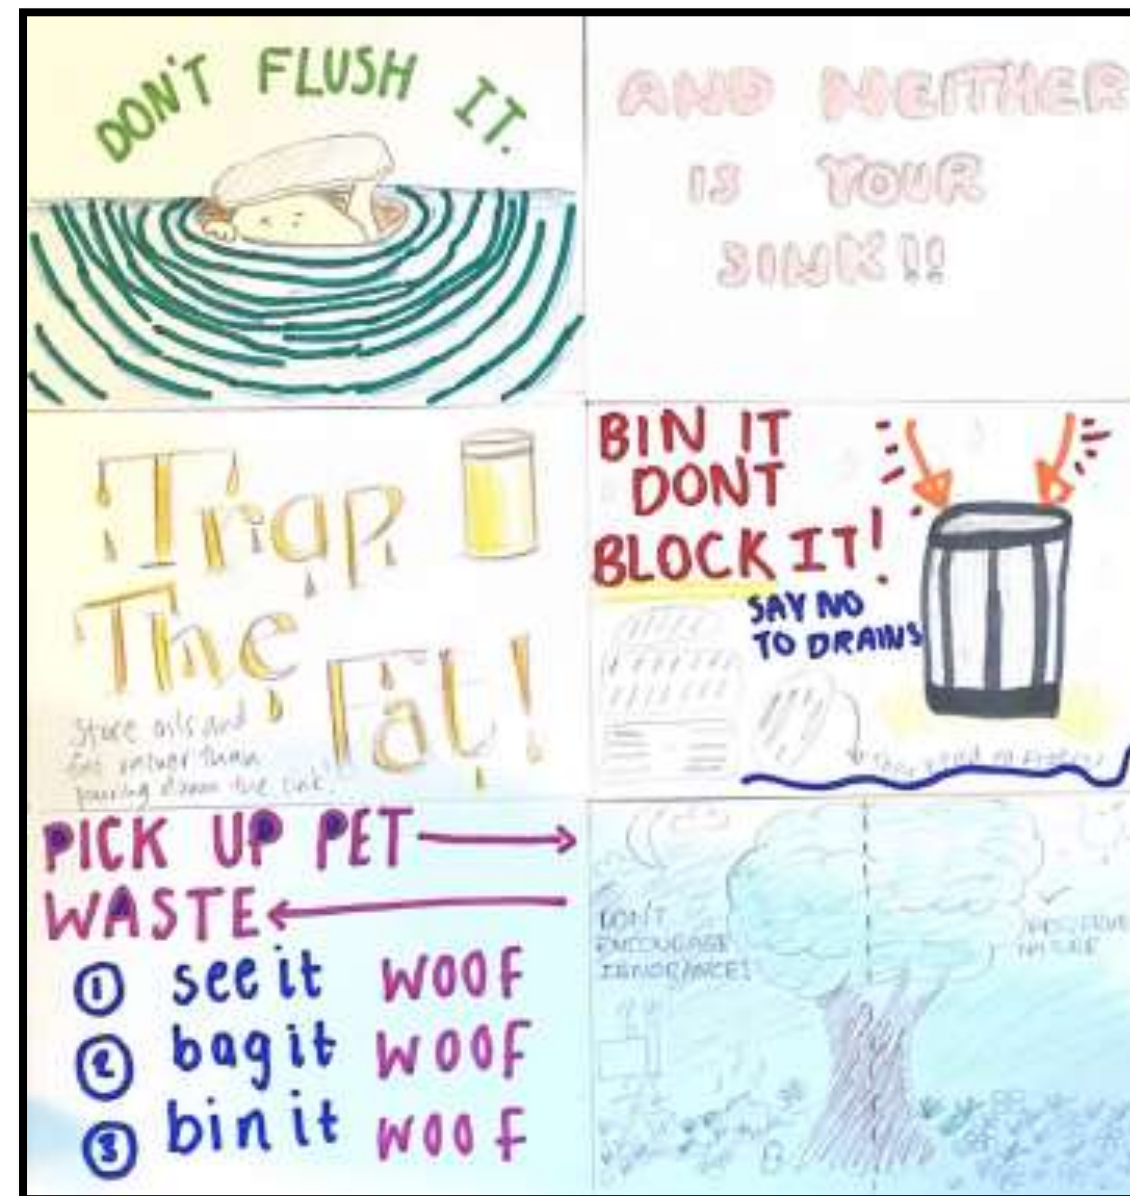 DON'T FLUSH IT.
AND NEITHER
IS YOUR
SINK!!
Trap
The
Fat!
Store oils and
fat rather than
pouring down the sink!
BIN IT
DONT
BLOCK IT!
SAY NO
TO DRAINS
PICK UP PET
WASTE
1 see it WOOF
2 bag it WOOF
3 bin it WOOF
DON'T
ENCOURAGE
IGNORANCE!
NATURE